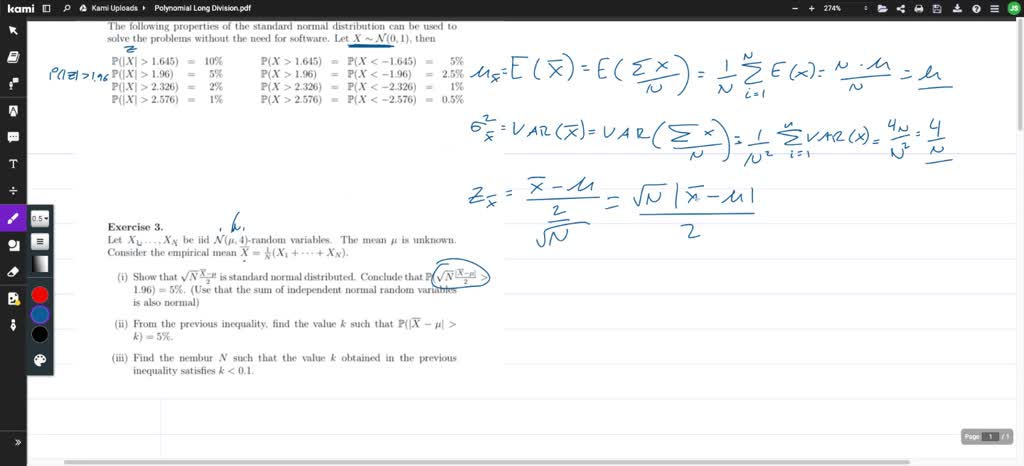 kami
Kami Uploads ▸ Polynomial Long Division.pdf
274%
JS
The following properties of the standard normal distribution can be used to
solve the problems without the need for software. Let X ∼ N(0, 1), then
Z
P(|Z| > 1.96
P(|X| > 1.645) = 10% P(X > 1.645) = P(X < −1.645) = 5%
P(|X| > 1.96) = 5% P(X > 1.96) = P(X < −1.96) = 2.5%
P(|X| > 2.326) = 2% P(X > 2.326) = P(X < −2.326) = 1%
P(|X| > 2.576) = 1% P(X > 2.576) = P(X < −2.576) = 0.5%
μx̄ = E(X̄) = E(Σx/N) = 1/N Σ_{i=1}^{N} E(x) = N·μ/N = μ
σ²x̄ = VAR(X̄) = VAR(Σx/N) = 1/N² Σ_{i=1}^{N} VAR(x) = 4N/N² = 4/N
Zx̄ = (x̄ − μ)/(2/√N) = √N |x̄ − μ| / 2
0.5
Exercise 3.
Let X₁, . . . , X_N be iid N(μ, 4)-random variables. The mean μ is unknown.
Consider the empirical mean X̄ = 1/N (X₁ + · · · + X_N).
(i) Show that √N (X̄−μ)/2 is standard normal distributed. Conclude that P(√N |X̄−μ|/2 >
1.96) = 5%. (Use that the sum of independent normal random variables
is also normal)
(ii) From the previous inequality, find the value k such that P(|X̄ − μ| >
k) = 5%.
(iii) Find the nembur N such that the value k obtained in the previous
inequality satisfies k < 0.1.
Page 1 / 1